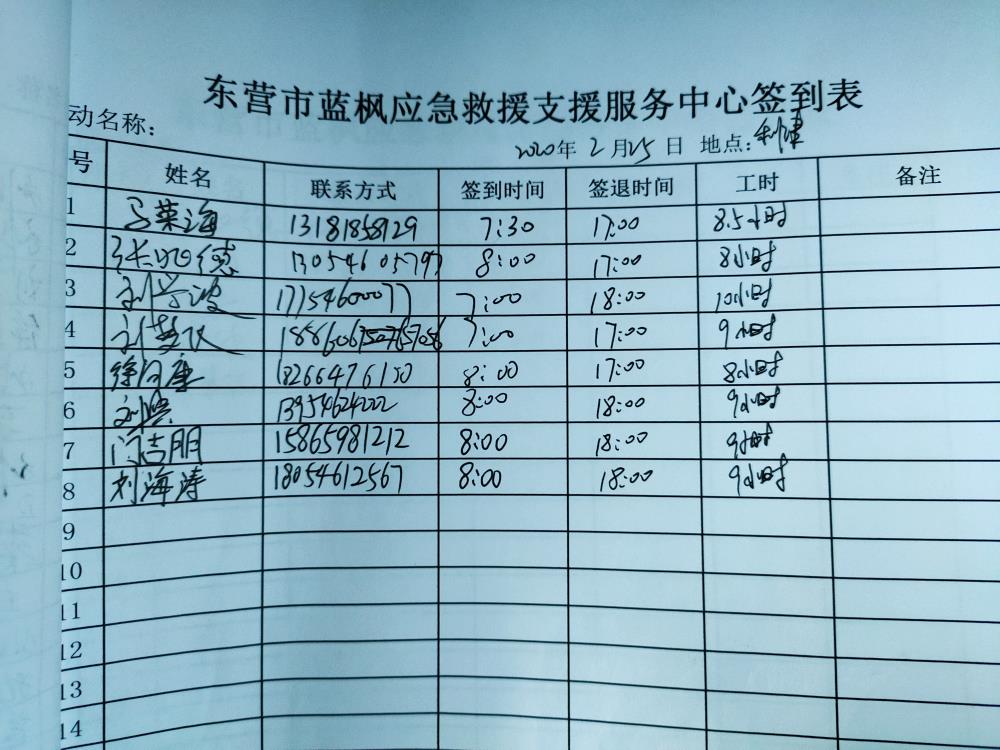 东营市蓝枫应急救援支援服务中心签到表
动名称:
2020年 2月25日 地点: 利津
号 姓名 联系方式 签到时间 签退时间 工时 备注
1 马荣海 13181858929 7:30 17:00 8.5小时
2 张 德 13054605797 8:00 17:00 8小时
3 刘学波 17154600077 7:00 18:00 10小时
4 刘 7:00 17:00 9小时
5 徐 康 18266476150 8:00 17:00 8小时
6 刘 13954624222 8:00 18:00 9小时
7 门吉朋 15865981212 8:00 18:00 9小时
8 刘海涛 18054612567 8:00 18:00 9小时
9
10
11
12
13
14